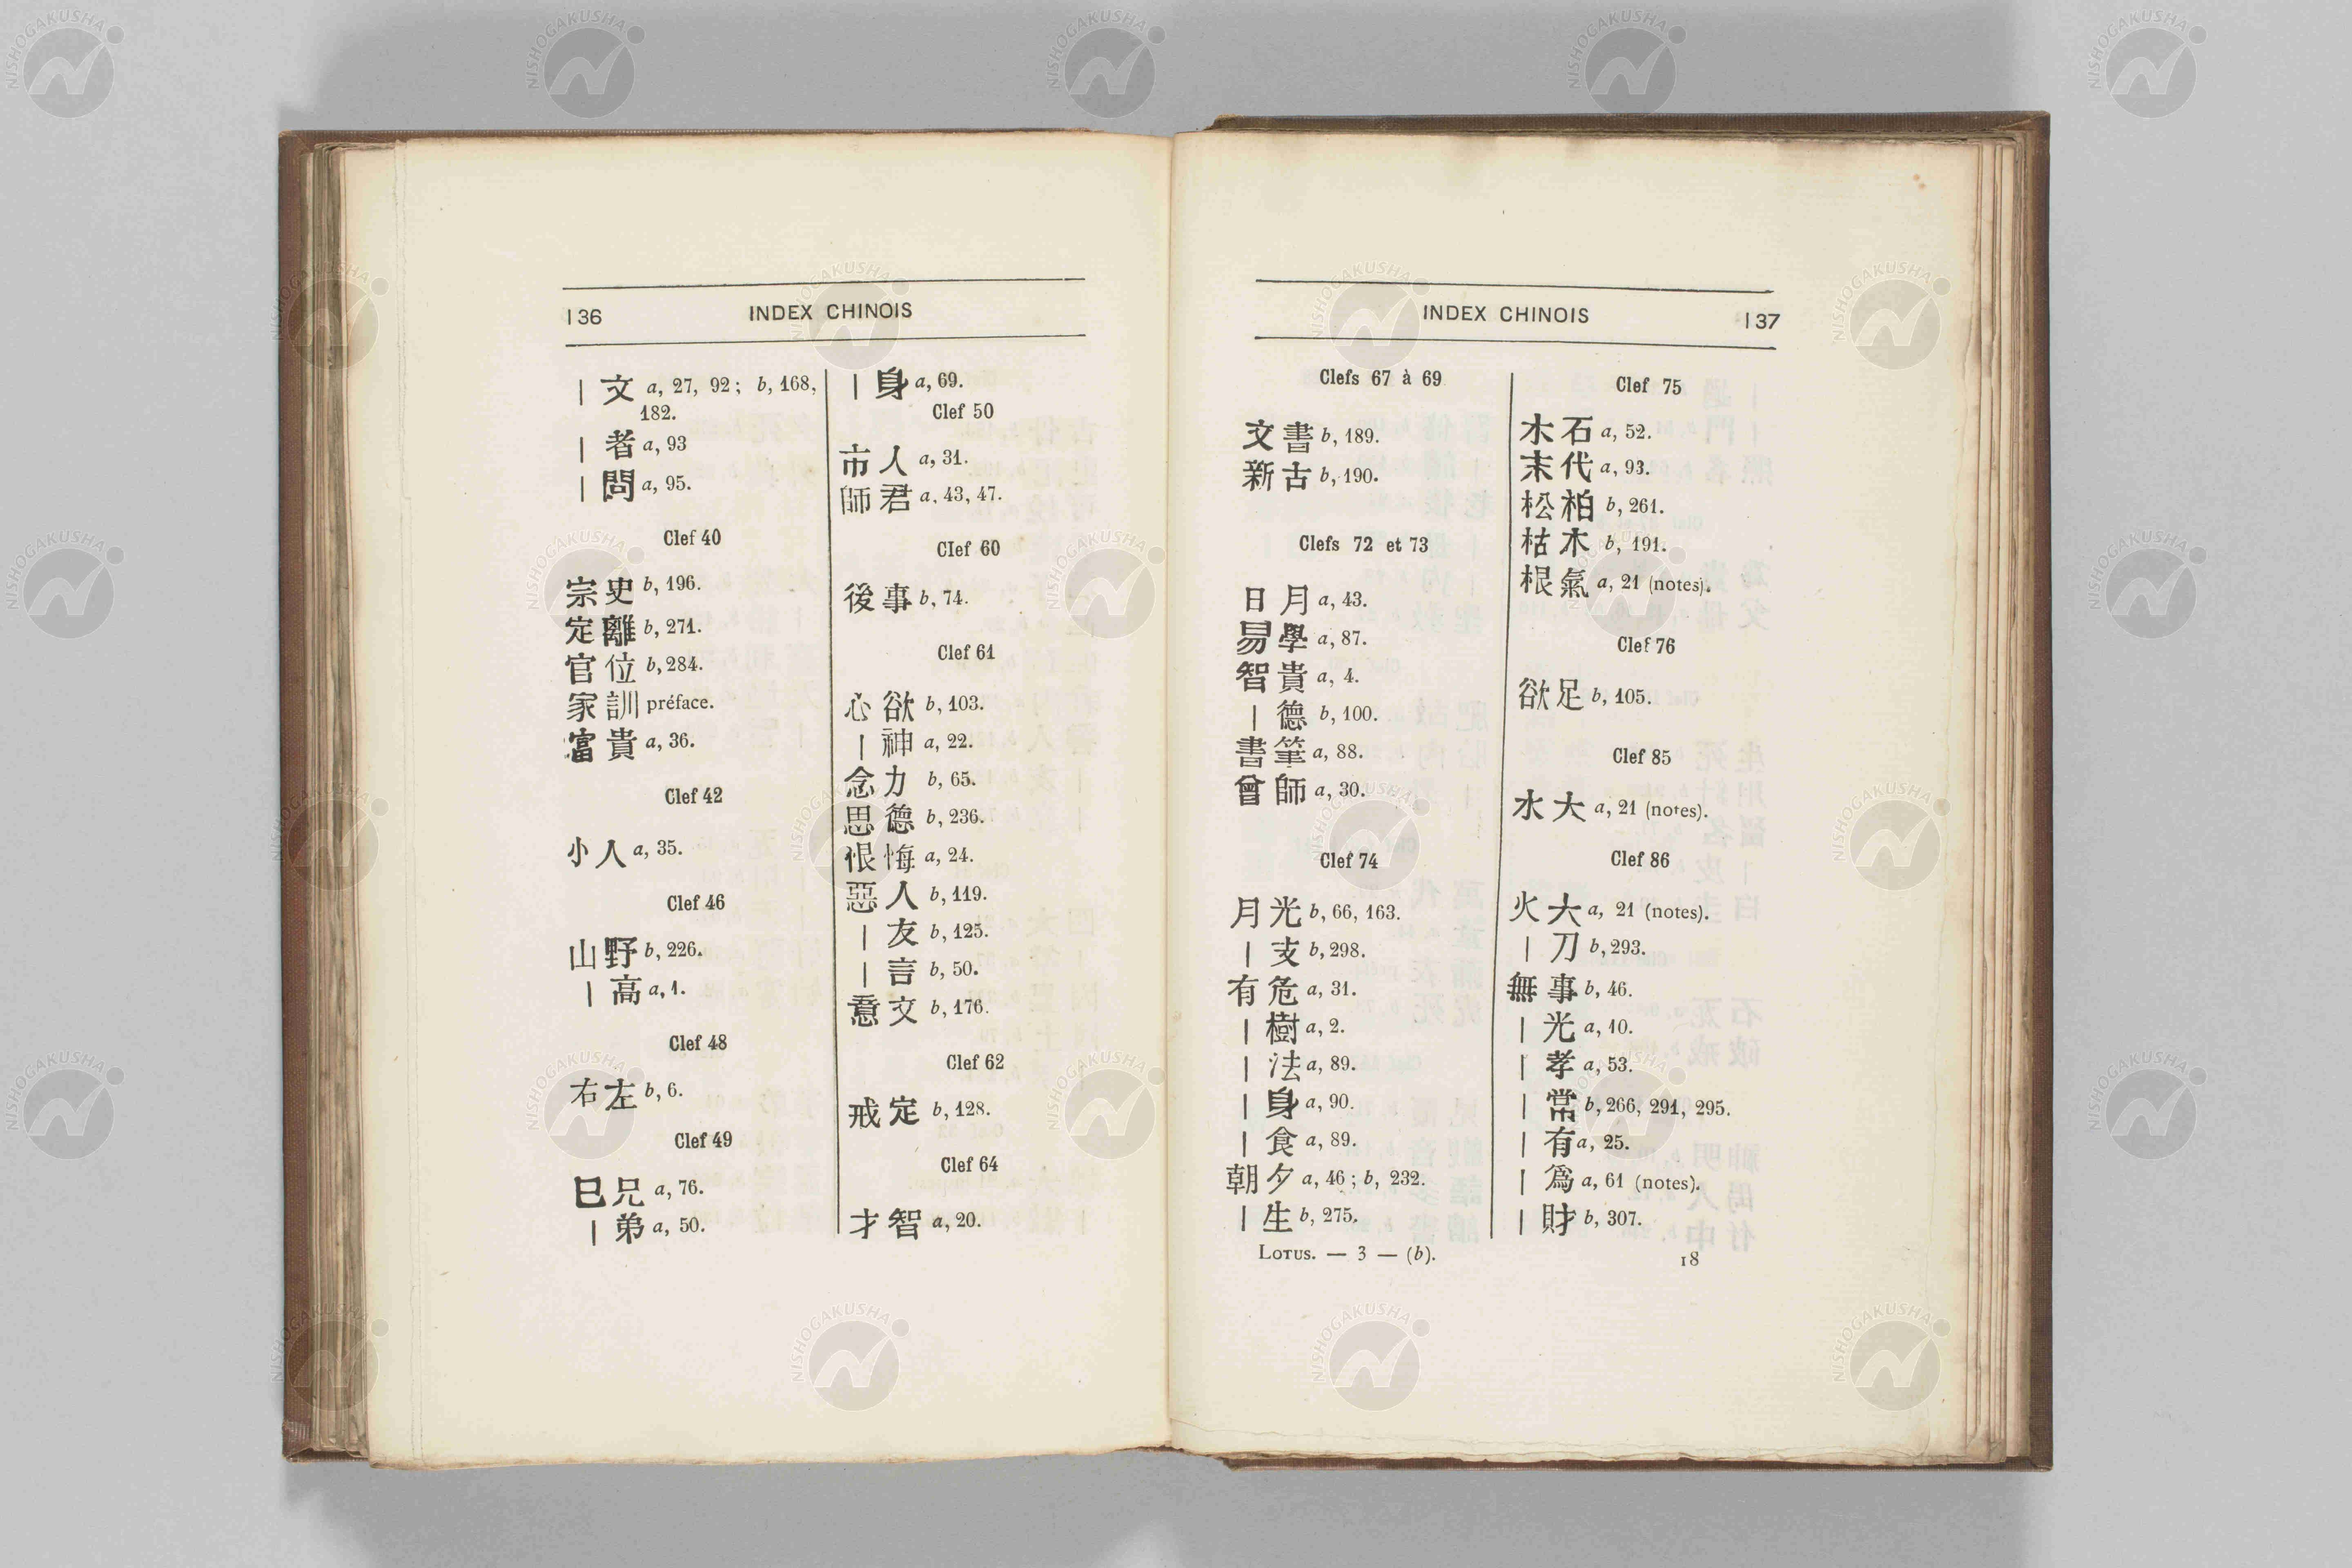 136 INDEX CHINOIS
| 文 a, 27, 92; b, 168,
182.
| 者 a, 93
| 問 a, 95.
Clef 40
宗史 b, 196.
定離 b, 271.
官位 b, 284.
家訓 préface.
富貴 a, 36.
Clef 42
小人 a, 35.
Clef 46
山野 b, 226.
| 高 a, 1.
Clef 48
右左 b, 6.
Clef 49
巳兄 a, 76.
| 弟 a, 50.
| 身 a, 69.
Clef 50
市人 a, 31.
師君 a, 43, 47.
Clef 60
後事 b, 74.
Clef 61
心欲 b, 103.
| 神 a, 22.
念力 b, 65.
思德 b, 236.
恨悔 a, 24.
惡人 b, 119.
| 友 b, 125.
| 言 b, 50.
意文 b, 176.
Clef 62
戒定 b, 128.
Clef 64
才智 a, 20.
INDEX CHINOIS 137
Clefs 67 à 69
文書 b, 189.
新古 b, 190.
Clefs 72 et 73
日月 a, 43.
易學 a, 87.
智貴 a, 4.
| 德 b, 100.
書筆 a, 88.
曾師 a, 30.
Clef 74
月光 b, 66, 163.
| 支 b, 298.
有危 a, 31.
| 樹 a, 2.
| 法 a, 89.
| 身 a, 90.
| 食 a, 89.
朝夕 a, 46; b, 232.
| 生 b, 275.
Clef 75
木石 a, 52.
末代 a, 93.
松柏 b, 261.
枯木 b, 191.
根氣 a, 21 (notes).
Clef 76
欲足 b, 105.
Clef 85
水大 a, 21 (notes).
Clef 86
火大 a, 21 (notes).
| 刀 b, 293.
無事 b, 46.
| 光 a, 10.
| 孝 a, 53.
| 常 b, 266, 291, 295.
| 有 a, 25.
| 爲 a, 61 (notes).
| 財 b, 307.
LOTUS. — 3 — (b). 18